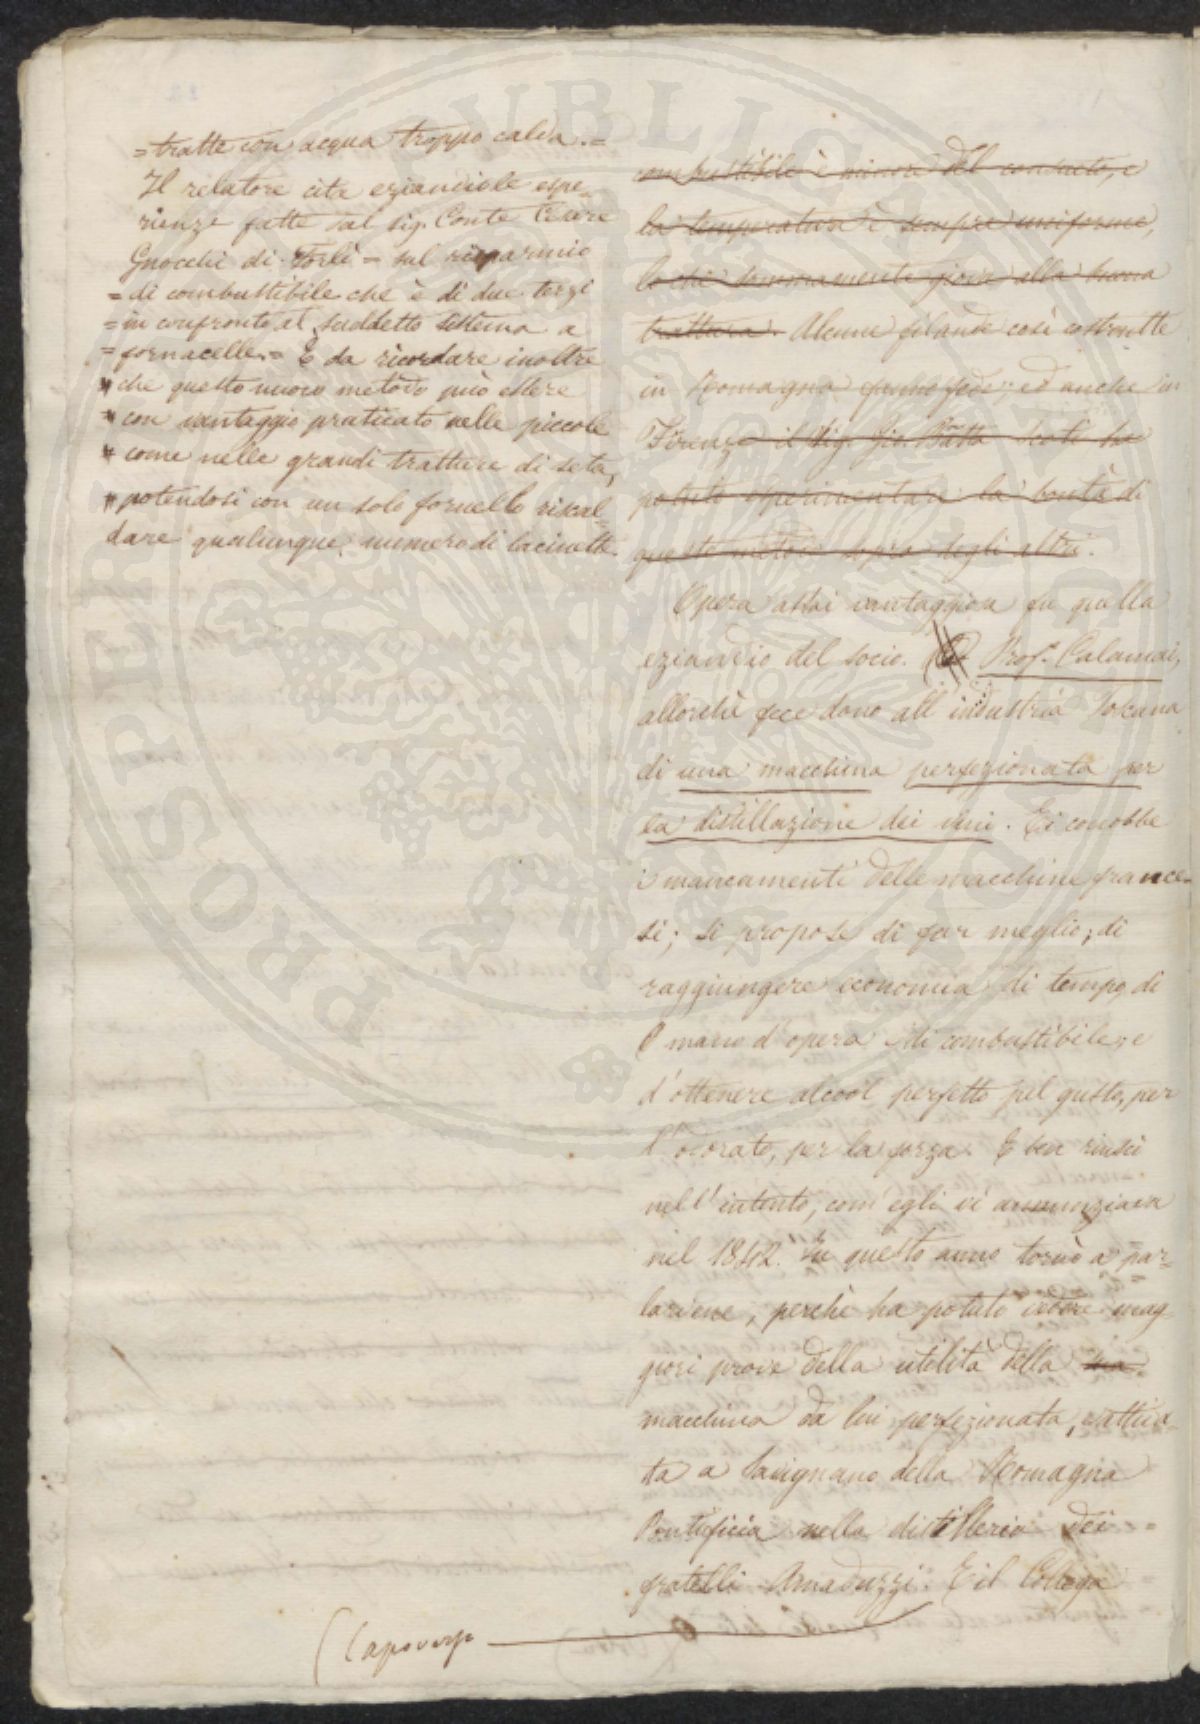 =tratte con acqua troppo calda.=
Il relatore cita eziandio le espe-
rienze fatte dal sig. Conte Cesare
Gnocchi di Forlì = sul risparmio
= di combustibile che è di due terzi
= in confronto al suddetto sistema a
= fornacelle. = È da ricordare inoltre
= che questo nuovo metodo può essere
= con vantaggio praticato nelle piccole
= come nelle grandi tratture di seta,
= potendosi con un solo fornello riscal-
dare qualunque numero di bacinelle.
combustibile è minore del consueto, e
la temperatura è sempre uniforme,
lo che sommamente giova alla buona
trattura. Alcune filande così costrutte
in Romagna fanno fede; ed anche in
Firenze il Sig. Gio. Batta Scoti ha
potuto esperimentare la bontà di
questo metodo sopra degli altri.
Opera assai vantaggiosa fu quella
eziandio del socio Prof. Calamai,
allorchè fece dono all'industria Toscana
di una macchina perfezionata per
la distillazione dei vini. Ei conobbe
i mancamenti delle macchine france-
si; si propose di far meglio; di
raggiungere economia di tempo, di
mano d'opera di combustibile, e
d'ottenere alcool perfetto pel gusto, per
l'odorato, per la forza. E ben riuscì
nell'intento, com'egli vi annunziava
nel 1842. In questo anno tornò a par-
larvene, perchè ha potuto avere mag-
giori prove della utilità della sua
macchina da lui perfezionata, e attua-
ta a Savignano della Romagna
Pontificia nella distilleria dei
fratelli Amaduzzi. E il Collega
(Capoverso
PROSPERITATI PUBLICAE AUGENDAE